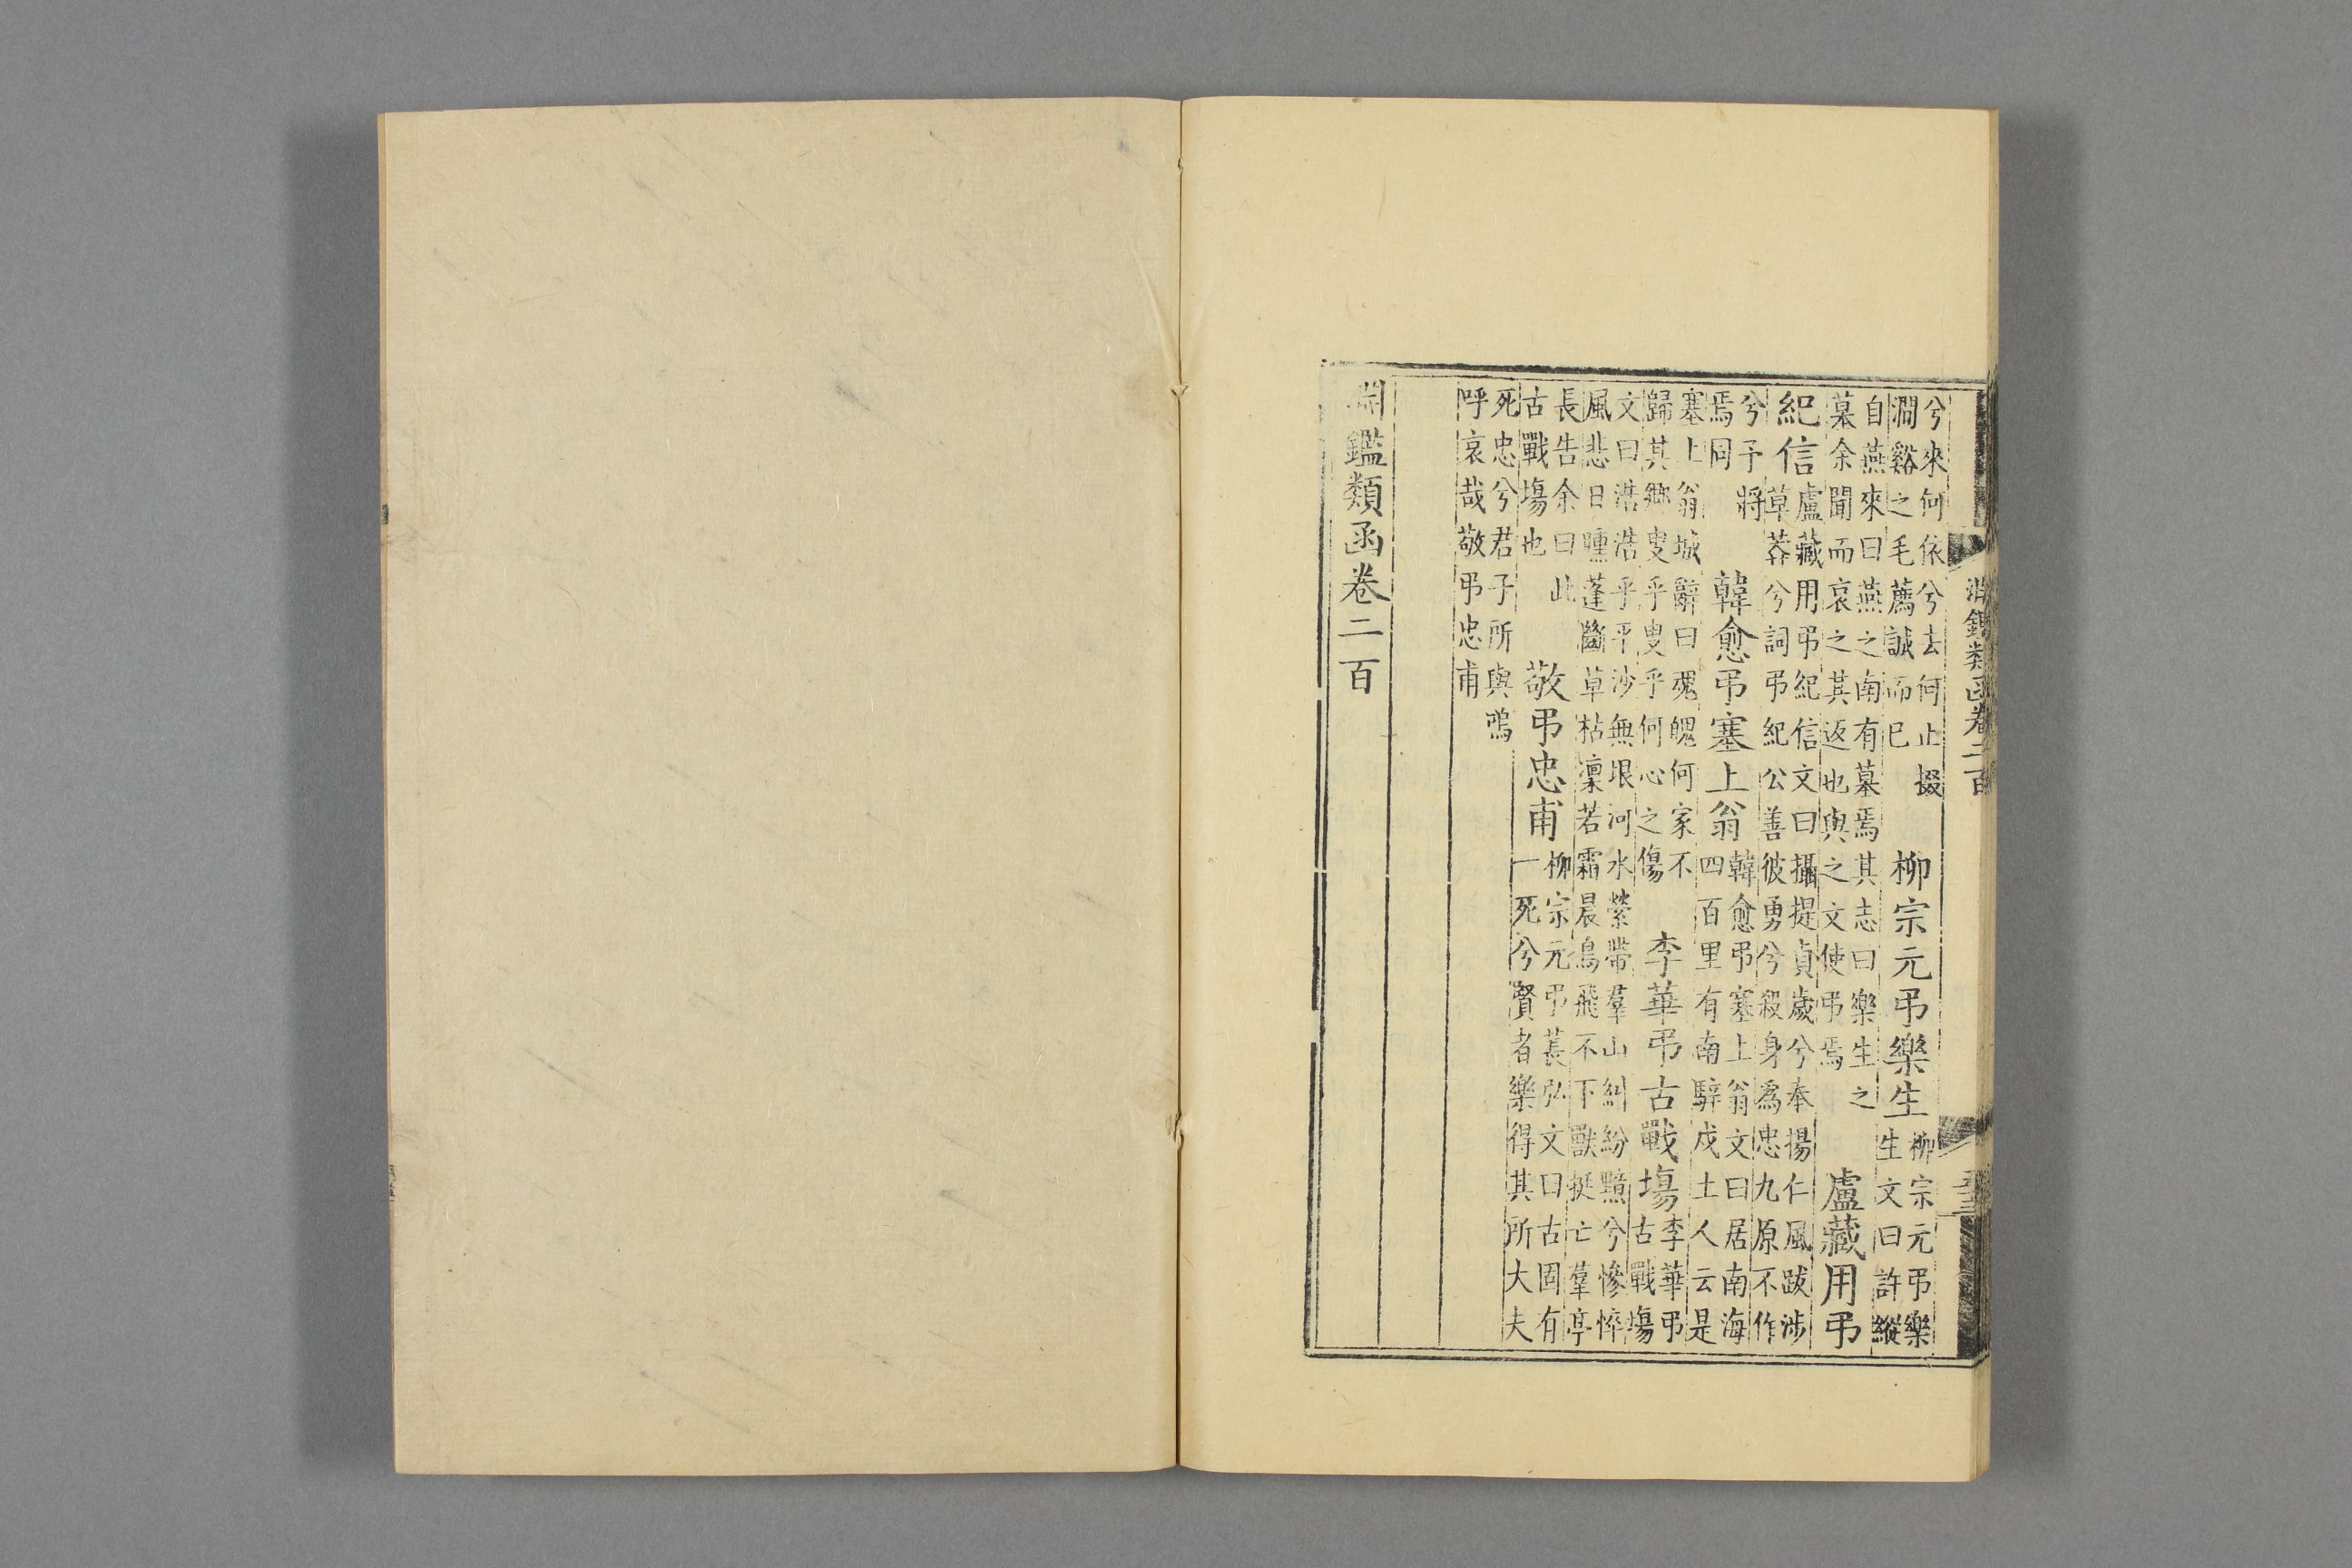 淵鑑類函卷二百
兮來何依兮去何止掇
澗谿之毛薦誠而已
柳宗元弔樂生
柳宗元弔樂
生文曰許縱
自燕來曰燕之南有墓焉其志曰樂生之
墓余聞而哀之其返也與之文使弔焉
盧藏用弔
紀信
盧藏用弔紀信文曰攝提貞歲兮奉揚仁風跋涉
草莽兮詞弔紀公善彼勇兮殺身爲忠九原不作
兮予將
焉同
韓愈弔塞上翁
韓愈弔塞上翁文曰居南海
四百里有南騂戍土人云是
塞上翁城辭曰魂魄何家不
歸其鄉叟乎叟乎何心之傷
李華弔古戰塲
李華弔
古戰塲
文曰浩浩乎平沙無垠河水縈帶羣山糾紛黯兮慘悴
風悲日曛蓬斷草枯凜若霜晨鳥飛不下獸挺亡羣亭
長告余曰此
古戰塲也
敬弔忠甫
柳宗元弔萇弘文曰古固有
一死兮賢者樂得其所大夫
死忠兮君子所與嗚
呼哀哉敬弔忠甫
淵鑑類函卷二百